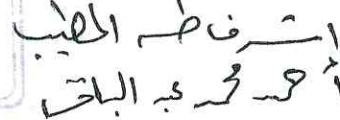 أشرف طه الخطيب
أحمد محمد عبد الباقى